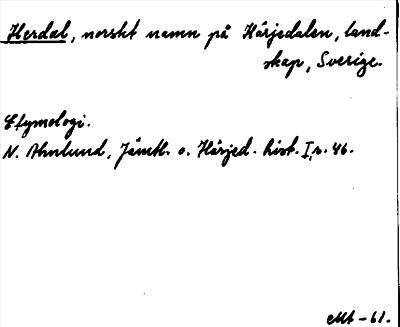 Herdal, norskt namn på Härjedalen, land-
skap, Sverige.
Etymologi.
N. Ahnlund, Jämtl. o. Härjed. hist. I, s. 46.
Mt - 61.